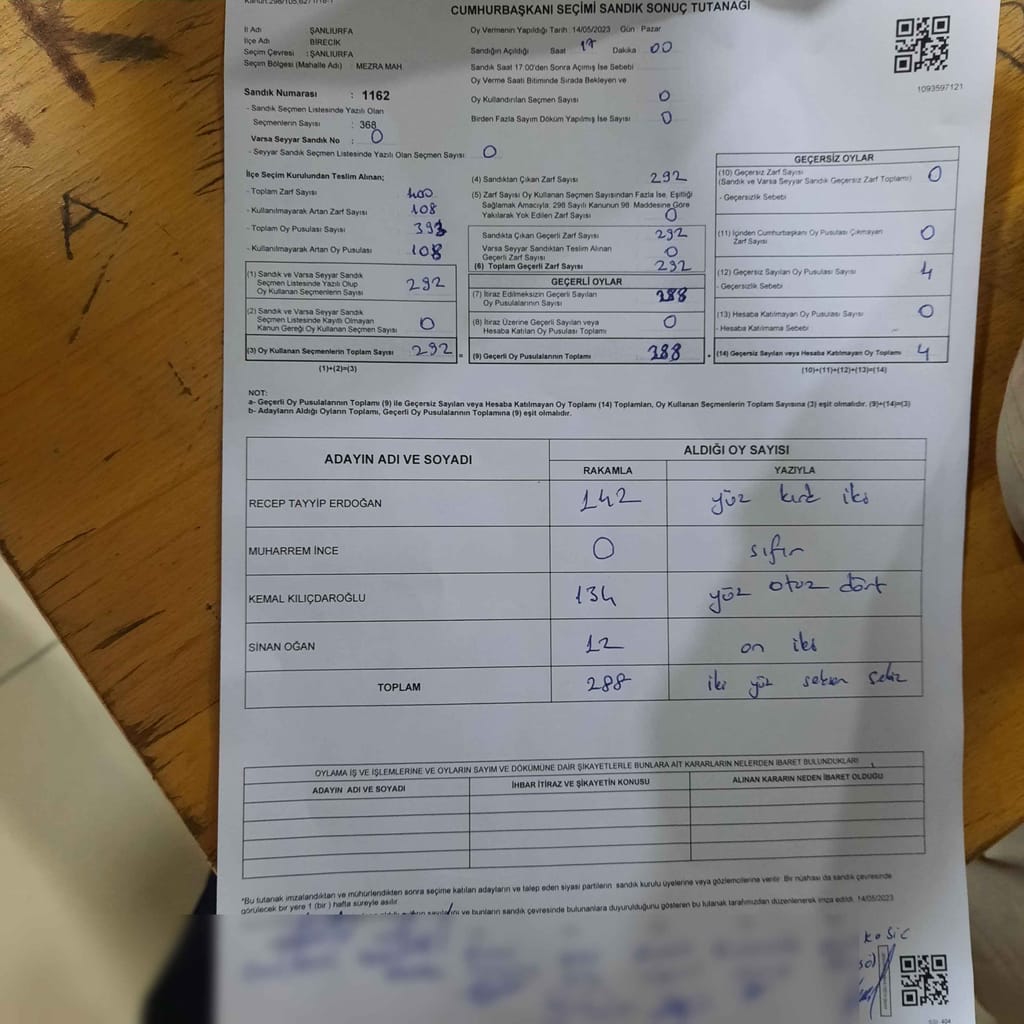 CUMHURBAŞKANI SEÇİMİ SANDIK SONUÇ TUTANAĞI
İl Adı ŞANLIURFA
İlçe Adı BİRECİK
Seçim Çevresi : ŞANLIURFA
Seçim Bölgesi (Mahalle Adı) : MEZRA MAH.
Oy Vermenin Yapıldığı Tarih : 14/05/2023 Gün : Pazar
Sandığın Açıldığı Saat 17 Dakika 00
Sandık Saat 17.00'den Sonra Açımış İse Sebebi
Oy Verme Saati Bitiminde Sırada Bekleyen ve
Oy Kullandırılan Seçmen Sayısı 0
Birden Fazla Sayım Döküm Yapılmış İse Sayısı 0
1093597121
Sandık Numarası : 1162
- Sandık Seçmen Listesinde Yazılı Olan
Seçmenlerin Sayısı : 368
Varsa Seyyar Sandık No : 0
- Seyyar Sandık Seçmen Listesinde Yazılı Olan Seçmen Sayısı 0
İlçe Seçim Kurulundan Teslim Alınan;
- Toplam Zarf Sayısı 400
- Kullanılmayarak Artan Zarf Sayısı 108
- Toplam Oy Pusulası Sayısı
- Kullanılmayarak Artan Oy Pusulası 108
(1) Sandık ve Varsa Seyyar Sandık
Seçmen Listesinde Yazılı Olup
Oy Kullanan Seçmenlerin Sayısı 292
(2) Sandık ve Varsa Seyyar Sandık
Seçmen Listesinde Kayıtlı Olmayan
Kanun Gereği Oy Kullanan Seçmen Sayısı 0
(3) Oy Kullanan Seçmenlerin Toplam Sayısı 292
(1)+(2)=(3)
(4) Sandıktan Çıkan Zarf Sayısı 292
(5) Zarf Sayısı Oy Kullanan Seçmen Sayısından Fazla İse, Eşitliği
Sağlamak Amacıyla; 298 Sayılı Kanunun 98. Maddesine Göre
Yakılarak Yok Edilen Zarf Sayısı 0
Sandıkta Çıkan Geçerli Zarf Sayısı 292
Varsa Seyyar Sandıktan Teslim Alınan
Geçerli Zarf Sayısı 0
(6) Toplam Geçerli Zarf Sayısı 292
GEÇERLİ OYLAR
(7) İtiraz Edilmeksizin Geçerli Sayılan
Oy Pusulalarının Sayısı 288
(8) İtiraz Üzerine Geçerli Sayılan veya
Hesaba Katılan Oy Pusulası Toplamı 0
(9) Geçerli Oy Pusulalarının Toplamı 288
GEÇERSİZ OYLAR
(10) Geçersiz Zarf Sayısı
(Sandık ve Varsa Seyyar Sandık Geçersiz Zarf Toplamı) 0
- Geçersizlik Sebebi
(11) İçinden Cumhurbaşkanı Oy Pusulası Çıkmayan
Zarf Sayısı 0
(12) Geçersiz Sayılan Oy Pusulası Sayısı 4
- Geçersizlik Sebebi
(13) Hesaba Katılmayan Oy Pusulası Sayısı 0
- Hesaba Katılmama Sebebi
(14) Geçersiz Sayılan veya Hesaba Katılmayan Oy Toplamı 4
(10)+(11)+(12)+(13)=(14)
NOT:
a- Geçerli Oy Pusulalarının Toplamı (9) ile Geçersiz Sayılan veya Hesaba Katılmayan Oy Toplamı (14) Toplamları, Oy Kullanan Seçmenlerin Toplam Sayısına (3) eşit olmalıdır. (9)+(14)=(3)
b- Adayların Aldığı Oyların Toplamı, Geçerli Oy Pusulalarının Toplamına (9) eşit olmalıdır.
ADAYIN ADI VE SOYADI ALDIĞI OY SAYISI
RAKAMLA YAZIYLA
RECEP TAYYİP ERDOĞAN 142 yüz kırk iki
MUHARREM İNCE 0 sıfır
KEMAL KILIÇDAROĞLU 134 yüz otuz dört
SİNAN OĞAN 12 on iki
TOPLAM 288 iki yüz seksen sekiz
OYLAMA İŞ VE İŞLEMLERİNE VE OYLARIN SAYIM VE DÖKÜMÜNE DAİR ŞİKAYETLERLE BUNLARA AİT KARARLARIN NELERDEN İBARET BULUNDUKLARI
ADAYIN ADI VE SOYADI İHBAR İTİRAZ VE ŞİKAYETİN KONUSU ALINAN KARARIN NEDEN İBARET OLDUĞU
*Bu tutanak imzalandıktan ve mühürlendikten sonra seçime katılan adayların ve talep eden siyasi partilerin sandık kurulu üyelerine veya gözlemcilerine verilir. Bir nüshası da sandık çevresinde
görülecek bir yere 1 (bir) hafta süreyle asılır.
ve bunların sandık çevresinde bulunanlara duyurulduğunu gösteren bu tutanak tarafımızdan düzenlenerek imza edildi. 14/05/2023